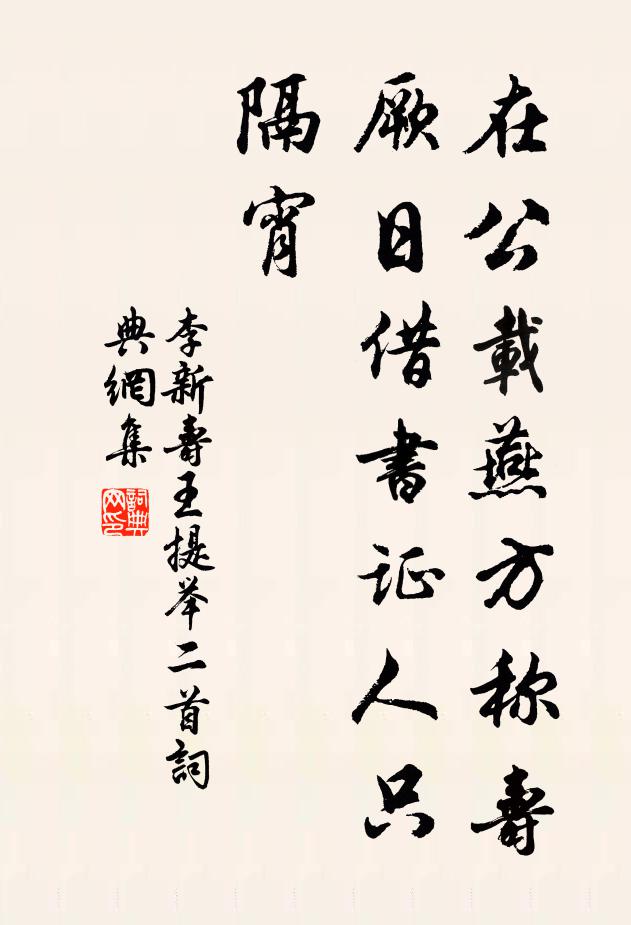 在公載燕方称壽
厥日借書证人只
隔宵
李新壽王提举二首詞
典網集
詞典网印